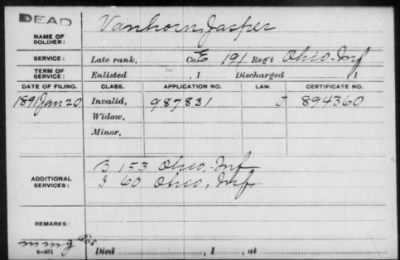 DEAD
NAME OF SOLDIER: Vanhorn, Jasper
SERVICE: Late rank, Co. E 191 Reg't Ohio. Inf
TERM OF SERVICE: Enlisted , 1 Discharged 1
DATE OF FILING. CLASS. APPLICATION NO. LAW. CERTIFICATE NO.
1891 Jan 20 Invalid, 987831 J 894360
Widow,
Minor,
ADDITIONAL SERVICES: B 153 Ohio. Inf
60 Ohio. Inf
REMARKS:
Died , 1 , at